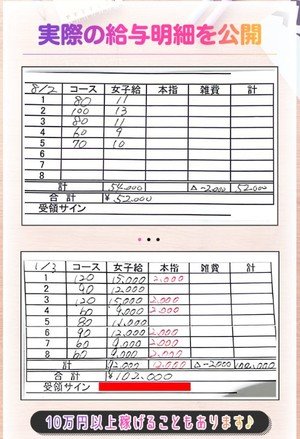 実際の給与明細を公開
8/2 コース 女子給 本指 雑費 計
1 80 11
2 100 13
3 80 11
4 60 9
5 70 10
6
7
8
計 54.000 △-2.000 52.000
合計 ¥52.000
受領サイン
1/3 コース 女子給 本指 雑費 計
1 120 15,000 2.000
2 90 12.000
3 120 15,000 2.000
4 60 9.000 2.000
5 80 11.000
6 90 12.000 2.000
7 60 9,000 2.000
8 60 9,000 2.000
計 92.000 12.000 △-2000 102.000
合計 ¥102.000
受領サイン
10万円以上稼げることもあります♪